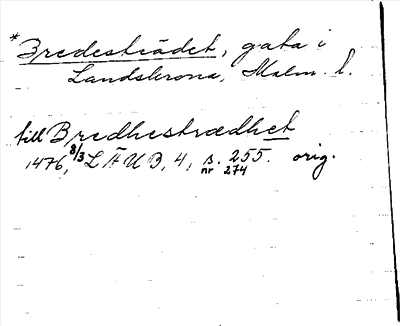 *Bredesträdet, gata i
Landskrona, Malm. l.
till Bredhestrædhet
1476, 8/3 L Ä U B, 4, s. 255. orig.
nr 274